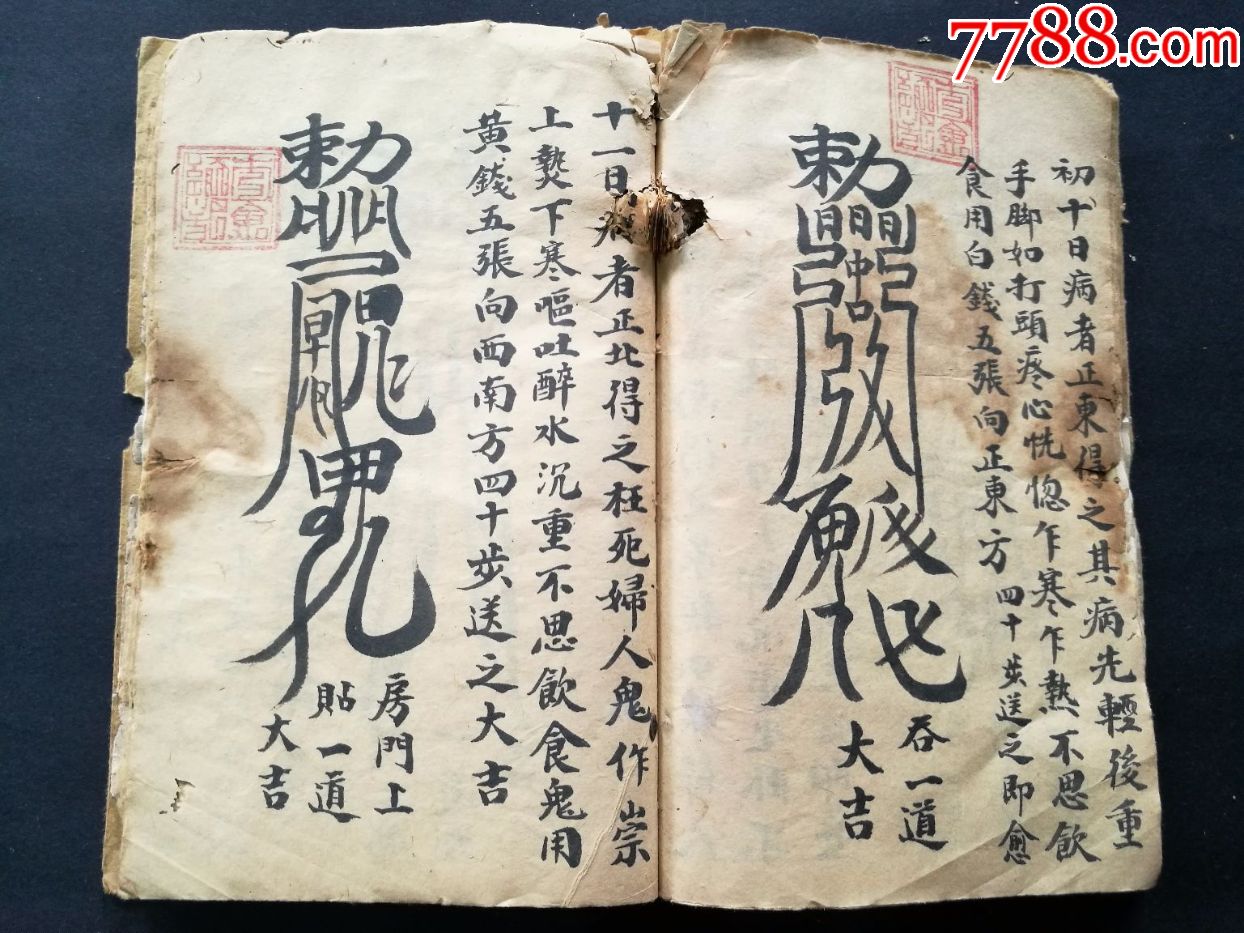 7788.com
初十日病者正東得之其病先輕後重
手脚如打頭疼心恍惚乍寒乍熱不思飲
食用白錢五張向正東方四十步送之即愈
勅
吞一道
大吉
十一日病者正北得之枉死婦人鬼作崇
上熱下寒嘔吐醉水沉重不思飲食鬼用
黃錢五張向西南方四十步送之大吉
勅
房門上
貼一道
大吉